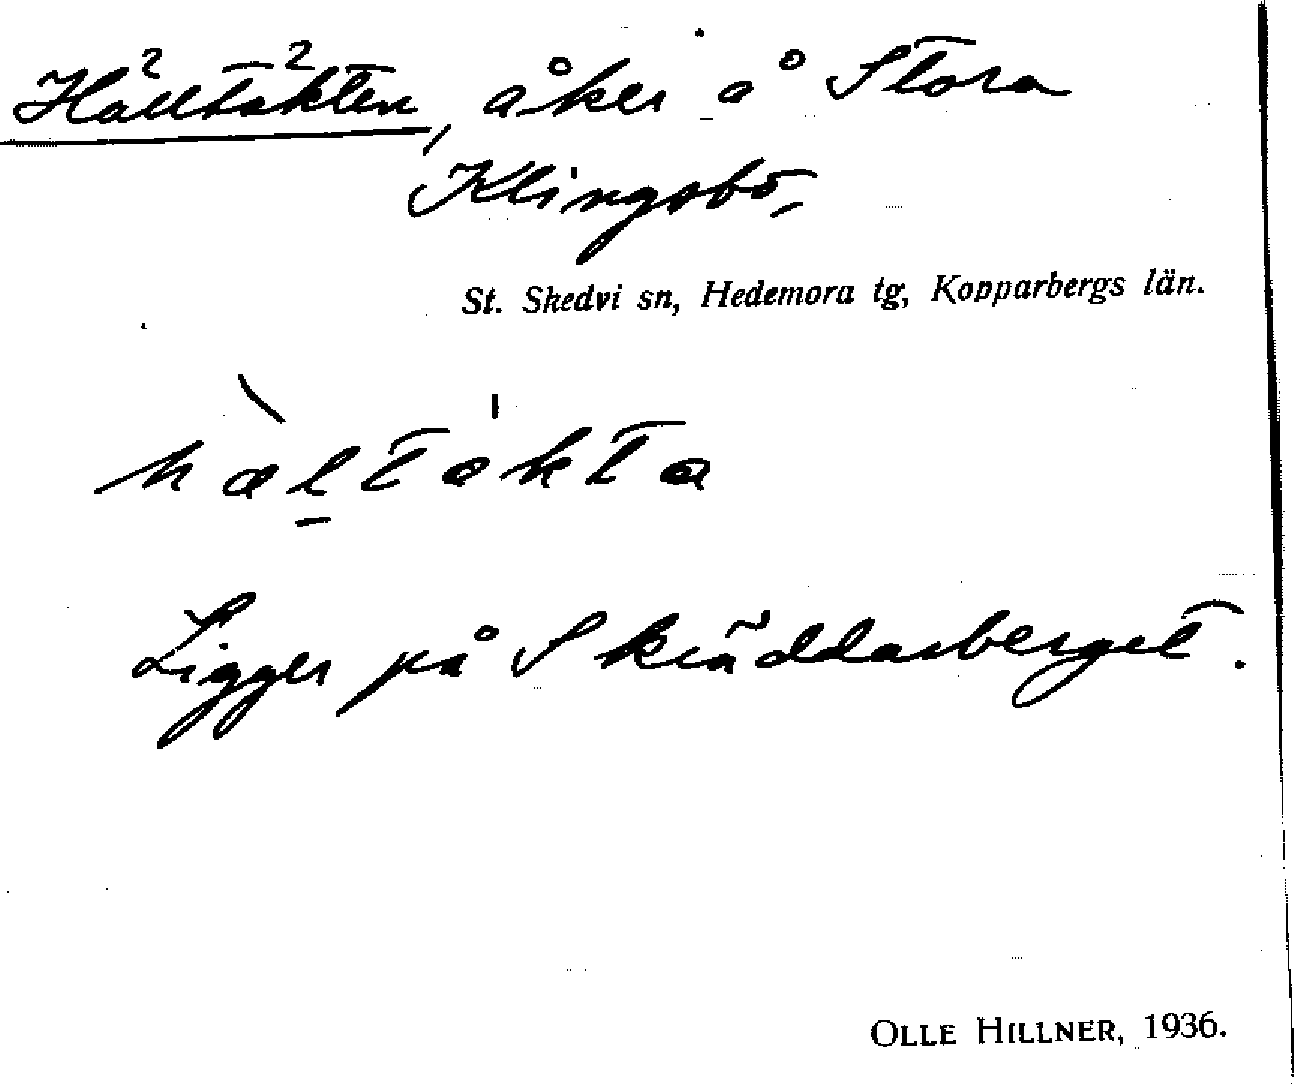 Hälltäkten, åker å Stora
Klingsbo,
St. Skedvi sn, Hedemora tg, Kopparbergs län.
Ligger på Skräddarberget.
OLLE HILLNER, 1936.